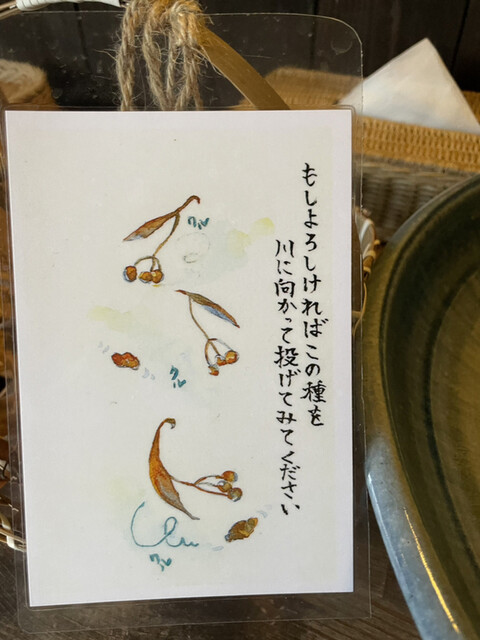 もしよろしければこの種を
川に向かって投げてみてください
クル
クル
クル